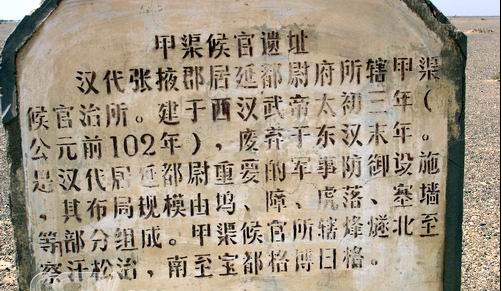 甲渠候官遗址
汉代张掖郡居延都尉府所辖甲渠
候官治所。建于西汉武帝太初三年（
公元前102年），废弃于东汉末年。
是汉代居延都尉重要的军事防御设施
，其布局规模由坞、障、虎落、塞墙
等部分组成。甲渠候官所辖烽燧北至
察汗松治，南至宝都格博日格。